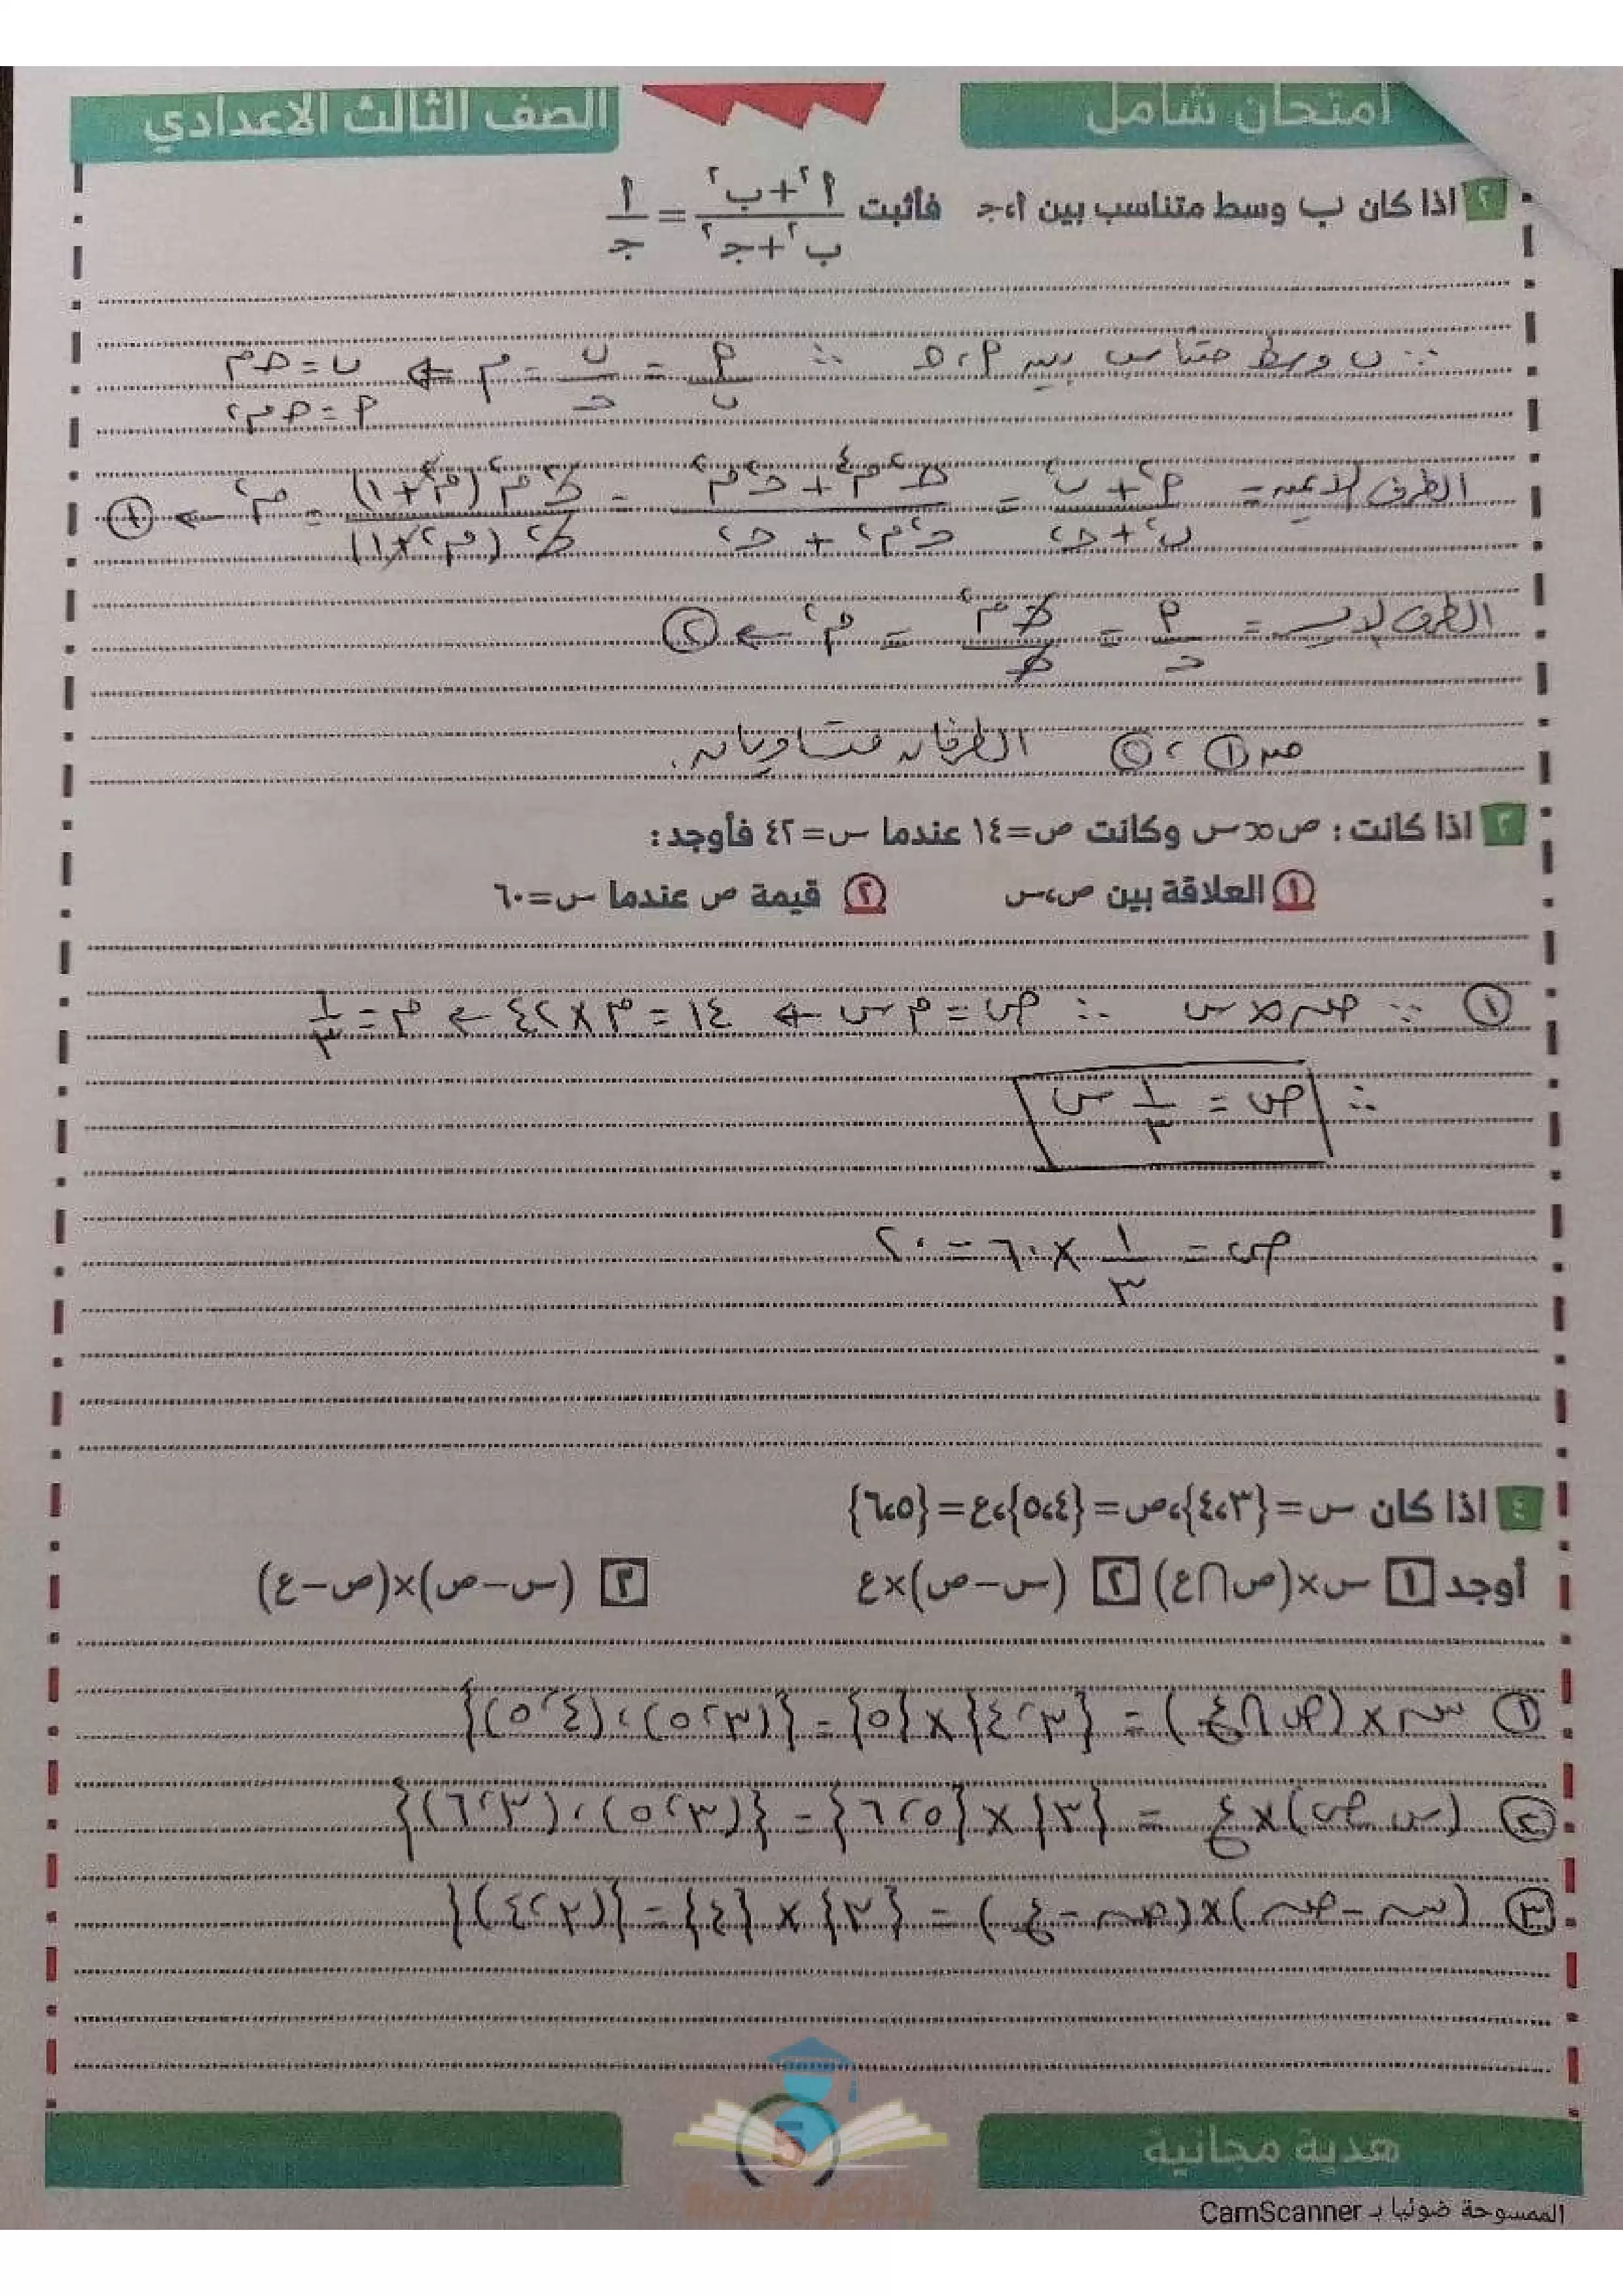 امتحان شامل
الصف الثالث الاعدادي
٢ اذا كان ب وسط متناسب بين أ،جـ فأثبت (أ٢+ب٢)/(ب٢+جـ٢) = أ/جـ
∵ ب وسط متناسب بين م،حـ ∴ م/ب = ب/حـ = م ⇐ ب=حـم
م=حـم٢
الطرف الايمن = (م٢+ب٢)/(ب٢+حـ٢) = (حـ٢م٤+حـ٢م٢)/(حـ٢م٢+حـ٢) = حـ٢م٢(م٢+١)/حـ٢(م٢+١) = م٢ ← ١
الطرف الايسر = م/حـ = حـم٢/حـ = م٢ ← ٢
من ١ ، ٢ الطرفان متساويان.
٣ اذا كانت : ص∝س وكانت ص=١٤ عندما س=٤٢ فأوجد :
١ العلاقة بين ص،س ٢ قيمة ص عندما س=٦٠
١ ∵ ص∝س ∴ ص=م س ← ١٤=م×٤٢ ← م=١/٣
∴ ص = ١/٣ س
ص = ١/٣ × ٦٠ = ٢٠
٤ اذا كان س={٤،٣}،ص={٥،٤}،ع={٦،٥}
أوجد ١ س×(ص∩ع) ٢ (س-ص)×ع ٣ (س-ص)×(ص-ع)
١ س×(ص∩ع) = {٤،٣}×{٥} = {(٥،٣)،(٥،٤)}
٢ (س ص)×ع = {٣}×{٦،٥} = {(٥،٣)،(٦،٣)}
٣ (س-ص)×(ص-ع) = {٣}×{٤} = {(٤،٣)}
هدية مجانية
الممسوحة ضوئيا بـ CamScanner